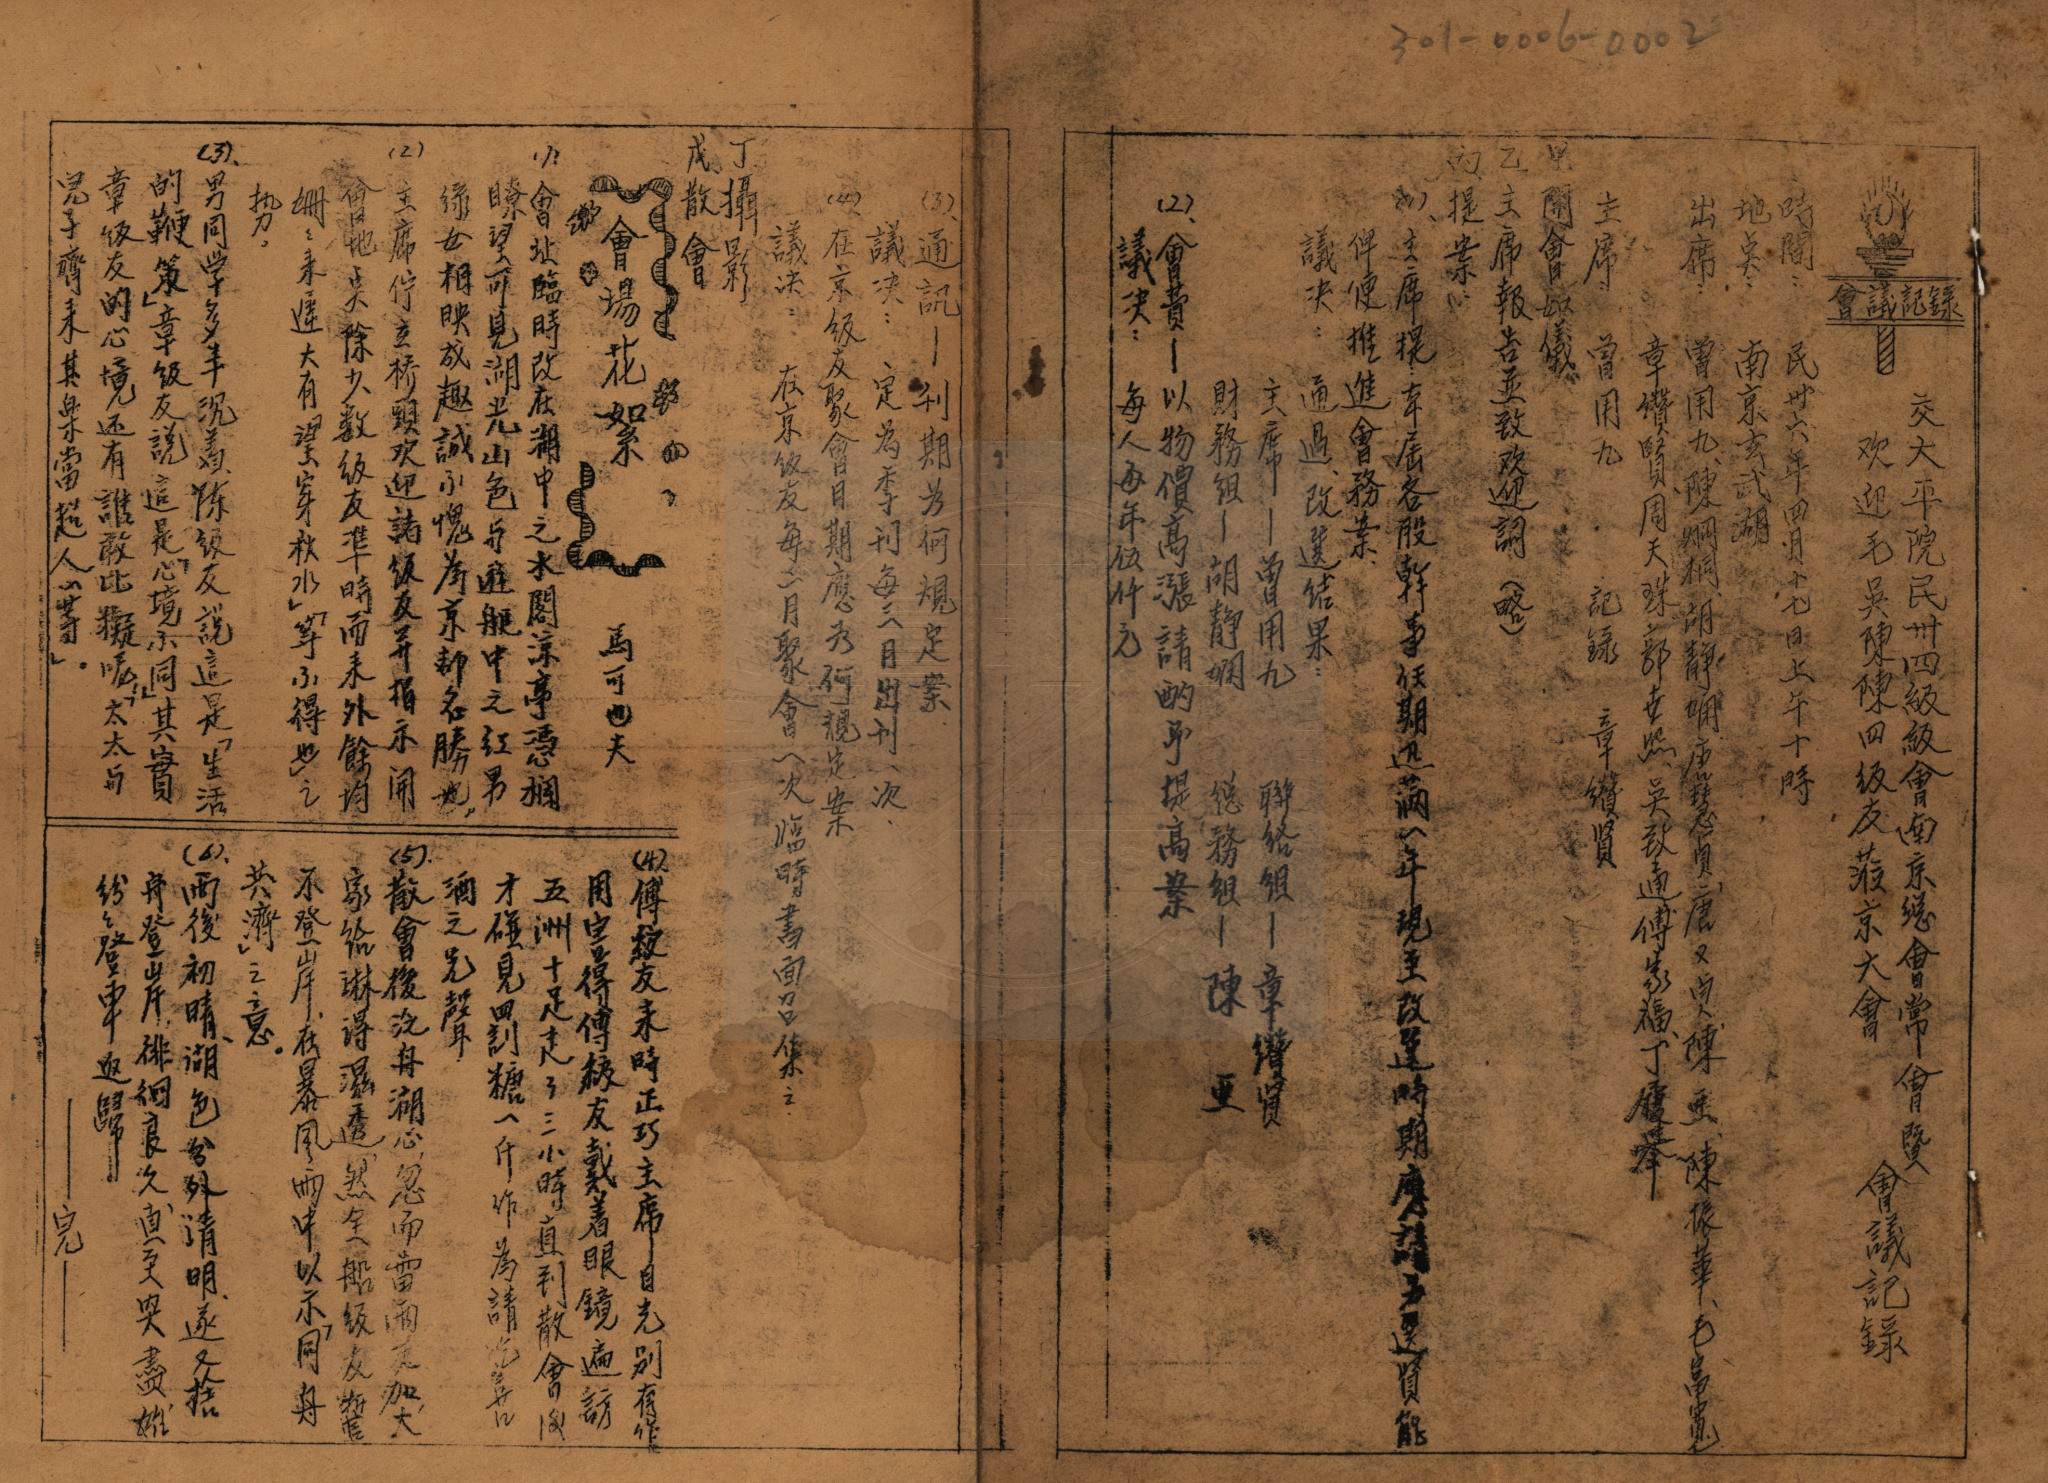 301-0006-0002
會議記錄
交大平院民卅四級級會南京總會常會暨
歡迎毛吳陳陳四級友蒞京大會
會議記錄
時間： 民卅六年四月十七日上午十時
地點： 南京玄武湖
出席： 曾用九、陳炯桐、胡靜嫻、唐慧貞、唐又貞、陳亞、陳振華、毛富寬
章纘賢、周天珠、郭世照、吳致通、傅家福、丁履舉
主席 曾用九 記錄 章纘賢
甲 開會如儀
乙 主席報告並致欢迎詞（略）
丙 提案：
(1)、主席提：本屆各股幹事任期迅滿一年現至改選時期應請另選賢能
俾便推進會務案
議決： 通過、改選結果：
主席——曾用九 聯絡組——章纘賢
財務組——胡静嫻 總務組——陳 亞
(2)、會費——以物價高漲請酌予提高案
議決： 每人每年伍仟元
(3)、通訊——刊期为何規定案
議决： 定為季刊每三月出刊一次
(4)、在京級友聚會日期應为何規定案
議决： 在京级友每二月聚會一次臨時書面召集之
丁 攝影
戊 散會
會場花絮
馬可也夫
(1) 會址臨時改在湖中之水閣凉亭憑欄
瞭望可見湖光山色与遊艇中之红男
绿女相映成趣誠不愧为京都名勝也。
(2) 主席佇立桥頭欢迎諸級友并指示開
會地点除少數級友準時而来外餘均
姗々来遲大有「望穿秋水」「等不得也」之
势。
(3)、男同学多半沉着陈级友説這是「生活
的鞭策」章級友説這是「心境不同」其實
章级友的心境还有誰敢比擬呢「太太与
兒子齊来其樂當超人一等」。
(4)、傅級友来時正巧主席目光别有作
用害得傅級友戴着眼鏡遍訪
五洲十足走了三小時直到散會後
才碰見四訓糖一斤作為請
酒之先聲
(5)、散會後泛舟湖心忽而雷雨交加大
家給淋得濕透然全船级友誓
不登岸在暴風雨中以示「同舟
共濟」之意。
(6)、雨後初晴湖色分外清明遂又捨
舟登岸徘徊良久直至興盡始
纷々登車返歸
——完——